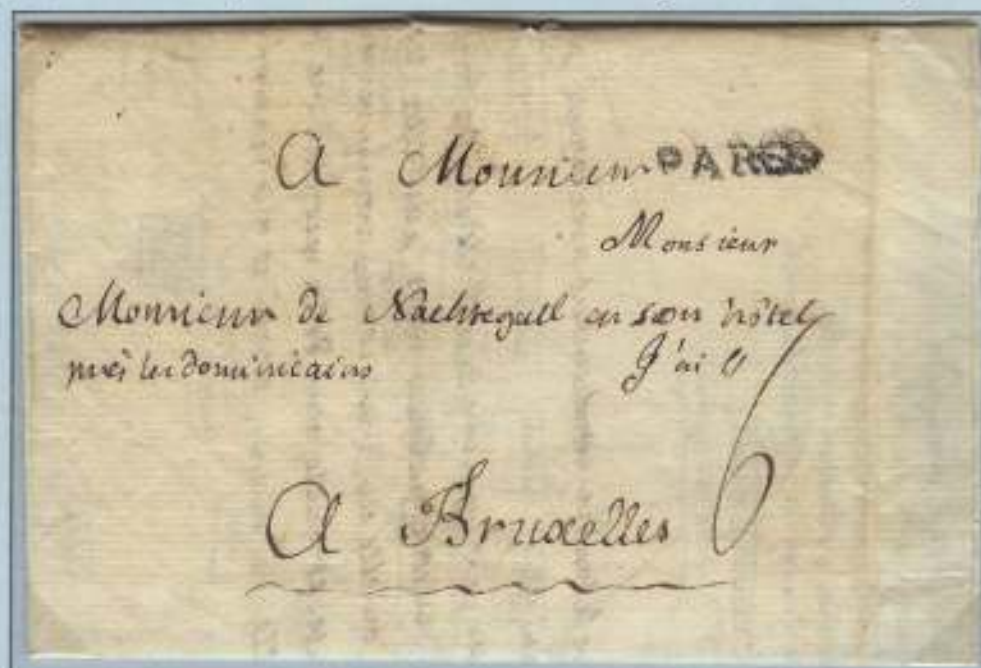 A Monsieur
Monsieur
Monsieur de Nachtegall en son hôtel
près les dominicains
A Bruxelles 6